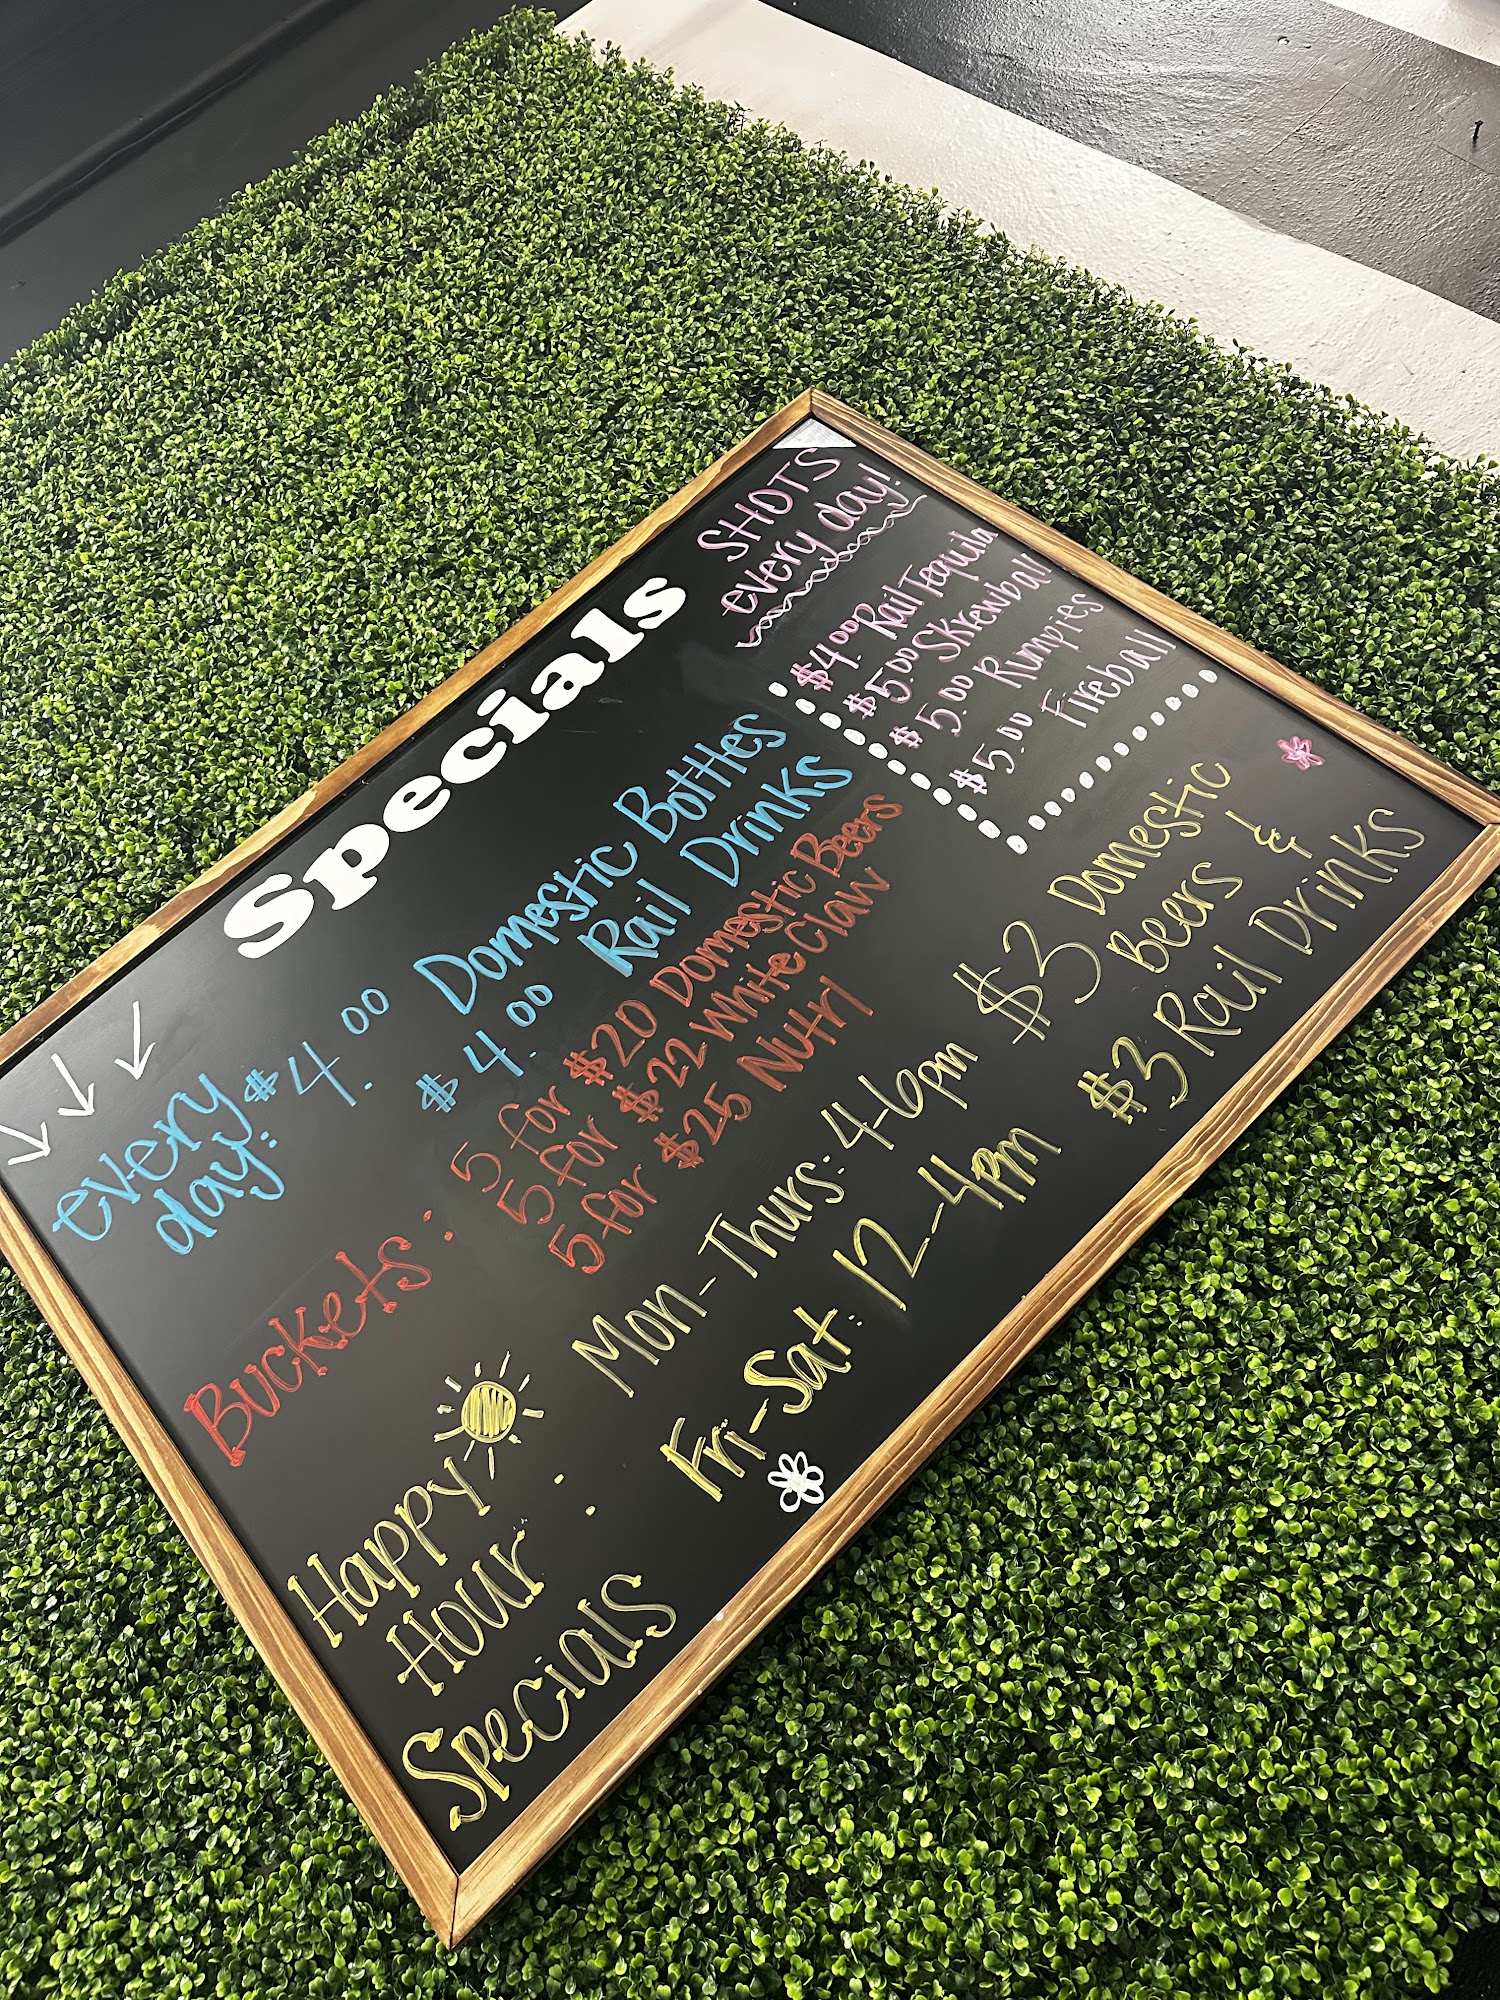 Specials
every day: $4.00 Domestic Bottles
$4.00 Rail Drinks
SHOTS
every day!
$4.00 Rail Tequila
$5.00 Skrewball
$5.00 Rumpies
$5.00 Fireball
Buckets: 5 for $20 Domestic Beers
5 for $22 White Claw
5 for $25 Nutrl
Happy
Hour :
Specials
Mon-Thurs: 4-6pm
Fri-Sat: 12-4pm
$3 Domestic
Beers &
$3 Rail Drinks